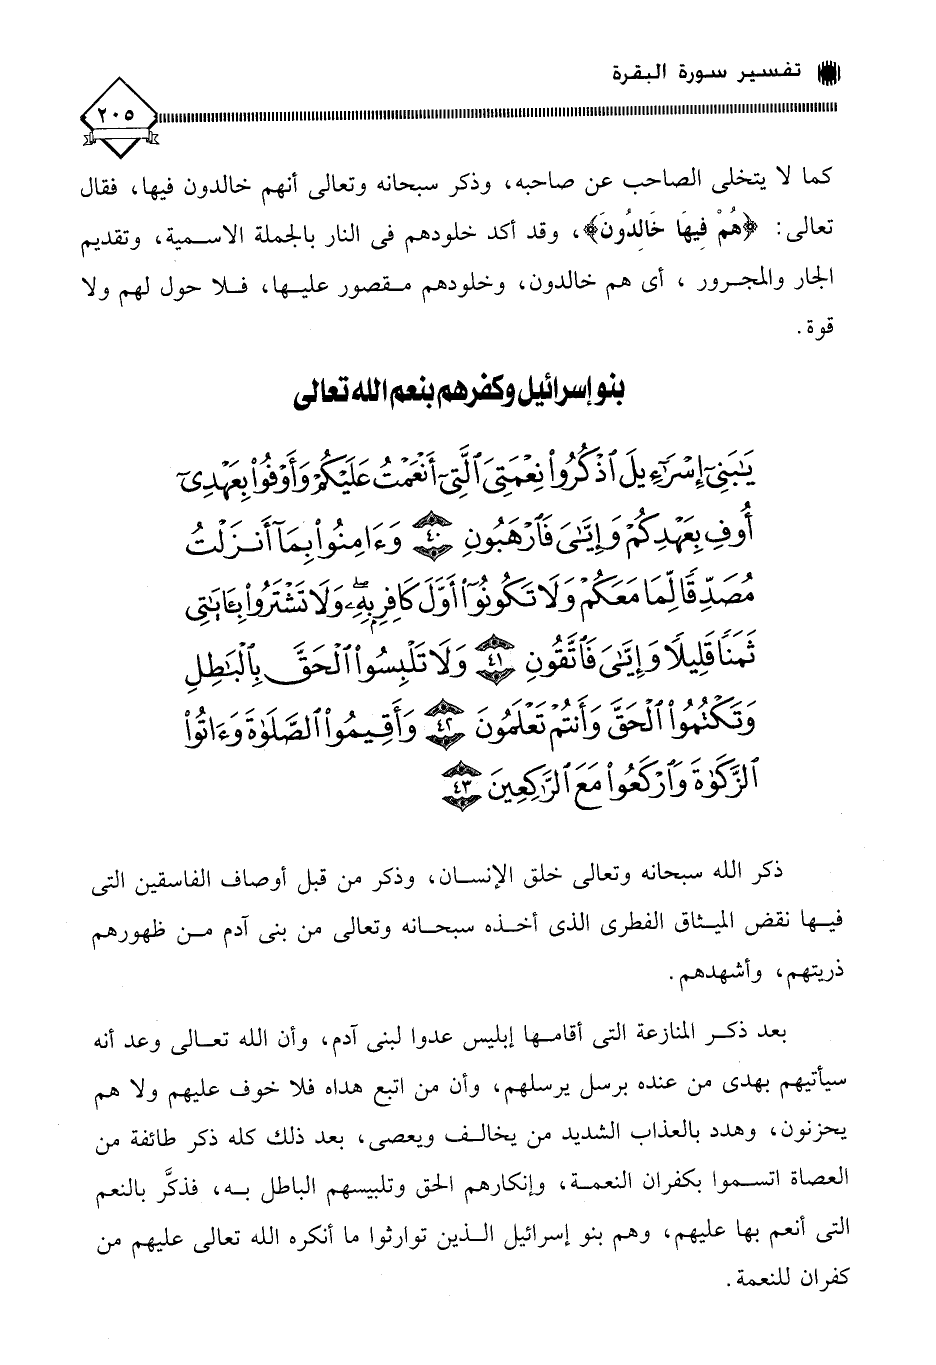 تفسير سورة البقرة
٢٠٥
كما لا يتخلى الصاحب عن صاحبه، وذكر سبحانه وتعالى أنهم خالدون فيها، فقال
تعالى: ﴿هُمْ فِيهَا خَالِدُونَ﴾، وقد أكد خلودهم فى النار بالجملة الاسمية، وتقديم
الجار والمجرور ، أى هم خالدون، وخلودهم مقصور عليها، فلا حول لهم ولا
قوة.
بنو إسرائيل وكفرهم بنعم الله تعالى
يَـٰبَنِىٓ إِسْرَٰٓءِيلَ ٱذْكُرُوا۟ نِعْمَتِىَ ٱلَّتِىٓ أَنْعَمْتُ عَلَيْكُمْ وَأَوْفُوا۟ بِعَهْدِىٓ
أُوفِ بِعَهْدِكُمْ وَإِيَّـٰىَ فَٱرْهَبُونِ ٤٠ وَءَامِنُوا۟ بِمَآ أَنزَلْتُ
مُصَدِّقًا لِّمَا مَعَكُمْ وَلَا تَكُونُوٓا۟ أَوَّلَ كَافِرٍۭ بِهِۦۖ وَلَا تَشْتَرُوا۟ بِـَٔايَـٰتِى
ثَمَنًا قَلِيلًا وَإِيَّـٰىَ فَٱتَّقُونِ ٤١ وَلَا تَلْبِسُوا۟ ٱلْحَقَّ بِٱلْبَـٰطِلِ
وَتَكْتُمُوا۟ ٱلْحَقَّ وَأَنتُمْ تَعْلَمُونَ ٤٢ وَأَقِيمُوا۟ ٱلصَّلَوٰةَ وَءَاتُوا۟
ٱلزَّكَوٰةَ وَٱرْكَعُوا۟ مَعَ ٱلرَّٰكِعِينَ ٤٣
ذكر الله سبحانه وتعالى خلق الإنسان، وذكر من قبل أوصاف الفاسقين التى
فيها نقض الميثاق الفطرى الذى أخذه سبحانه وتعالى من بنى آدم من ظهورهم
ذريتهم، وأشهدهم.
بعد ذكر المنازعة التى أقامها إبليس عدوا لبنى آدم، وأن الله تعالى وعد أنه
سيأتيهم بهدى من عنده برسل يرسلهم، وأن من اتبع هداه فلا خوف عليهم ولا هم
يحزنون، وهدد بالعذاب الشديد من يخالف ويعصى، بعد ذلك كله ذكر طائفة من
العصاة اتسموا بكفران النعمة، وإنكارهم الحق وتلبيسهم الباطل به، فذكَّر بالنعم
التى أنعم بها عليهم، وهم بنو إسرائيل الذين توارثوا ما أنكره الله تعالى عليهم من
كفران للنعمة.